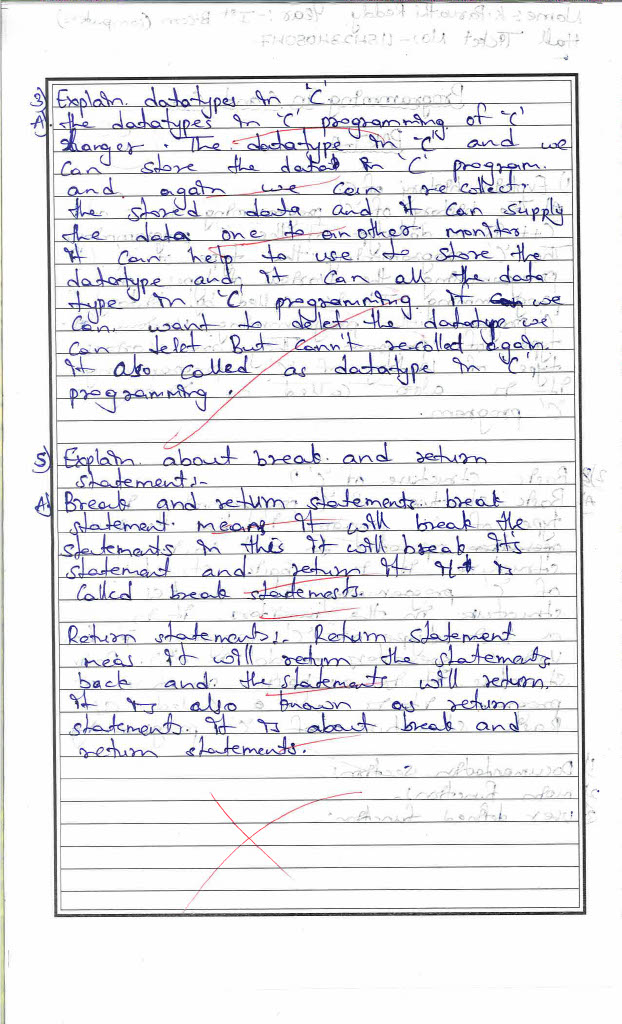 3) Explain datatypes in 'C'
A) the datatypes in 'C' programming of 'c'
. The datatype in 'C' and we
can store the data in 'C' program.
and again we can re collect
the stored data and it can supply
the data one to another monitor
it can help to use to store the
datatype and it can all the data
type in 'C' programming it we
can want to delet the datatype we
can delet But cann't recollect again.
It also called as datatype in 'C'
programming.
5) Explain about break and return
statement:-
A) Break and return statements break
statement means It will break the
statements in this it will break its
statement and return it it is
called break statements.
Return statements:- Return statement
meas it will return the statements
back and the statements will return.
It is also known as return
statements. It is about break and
return statements.